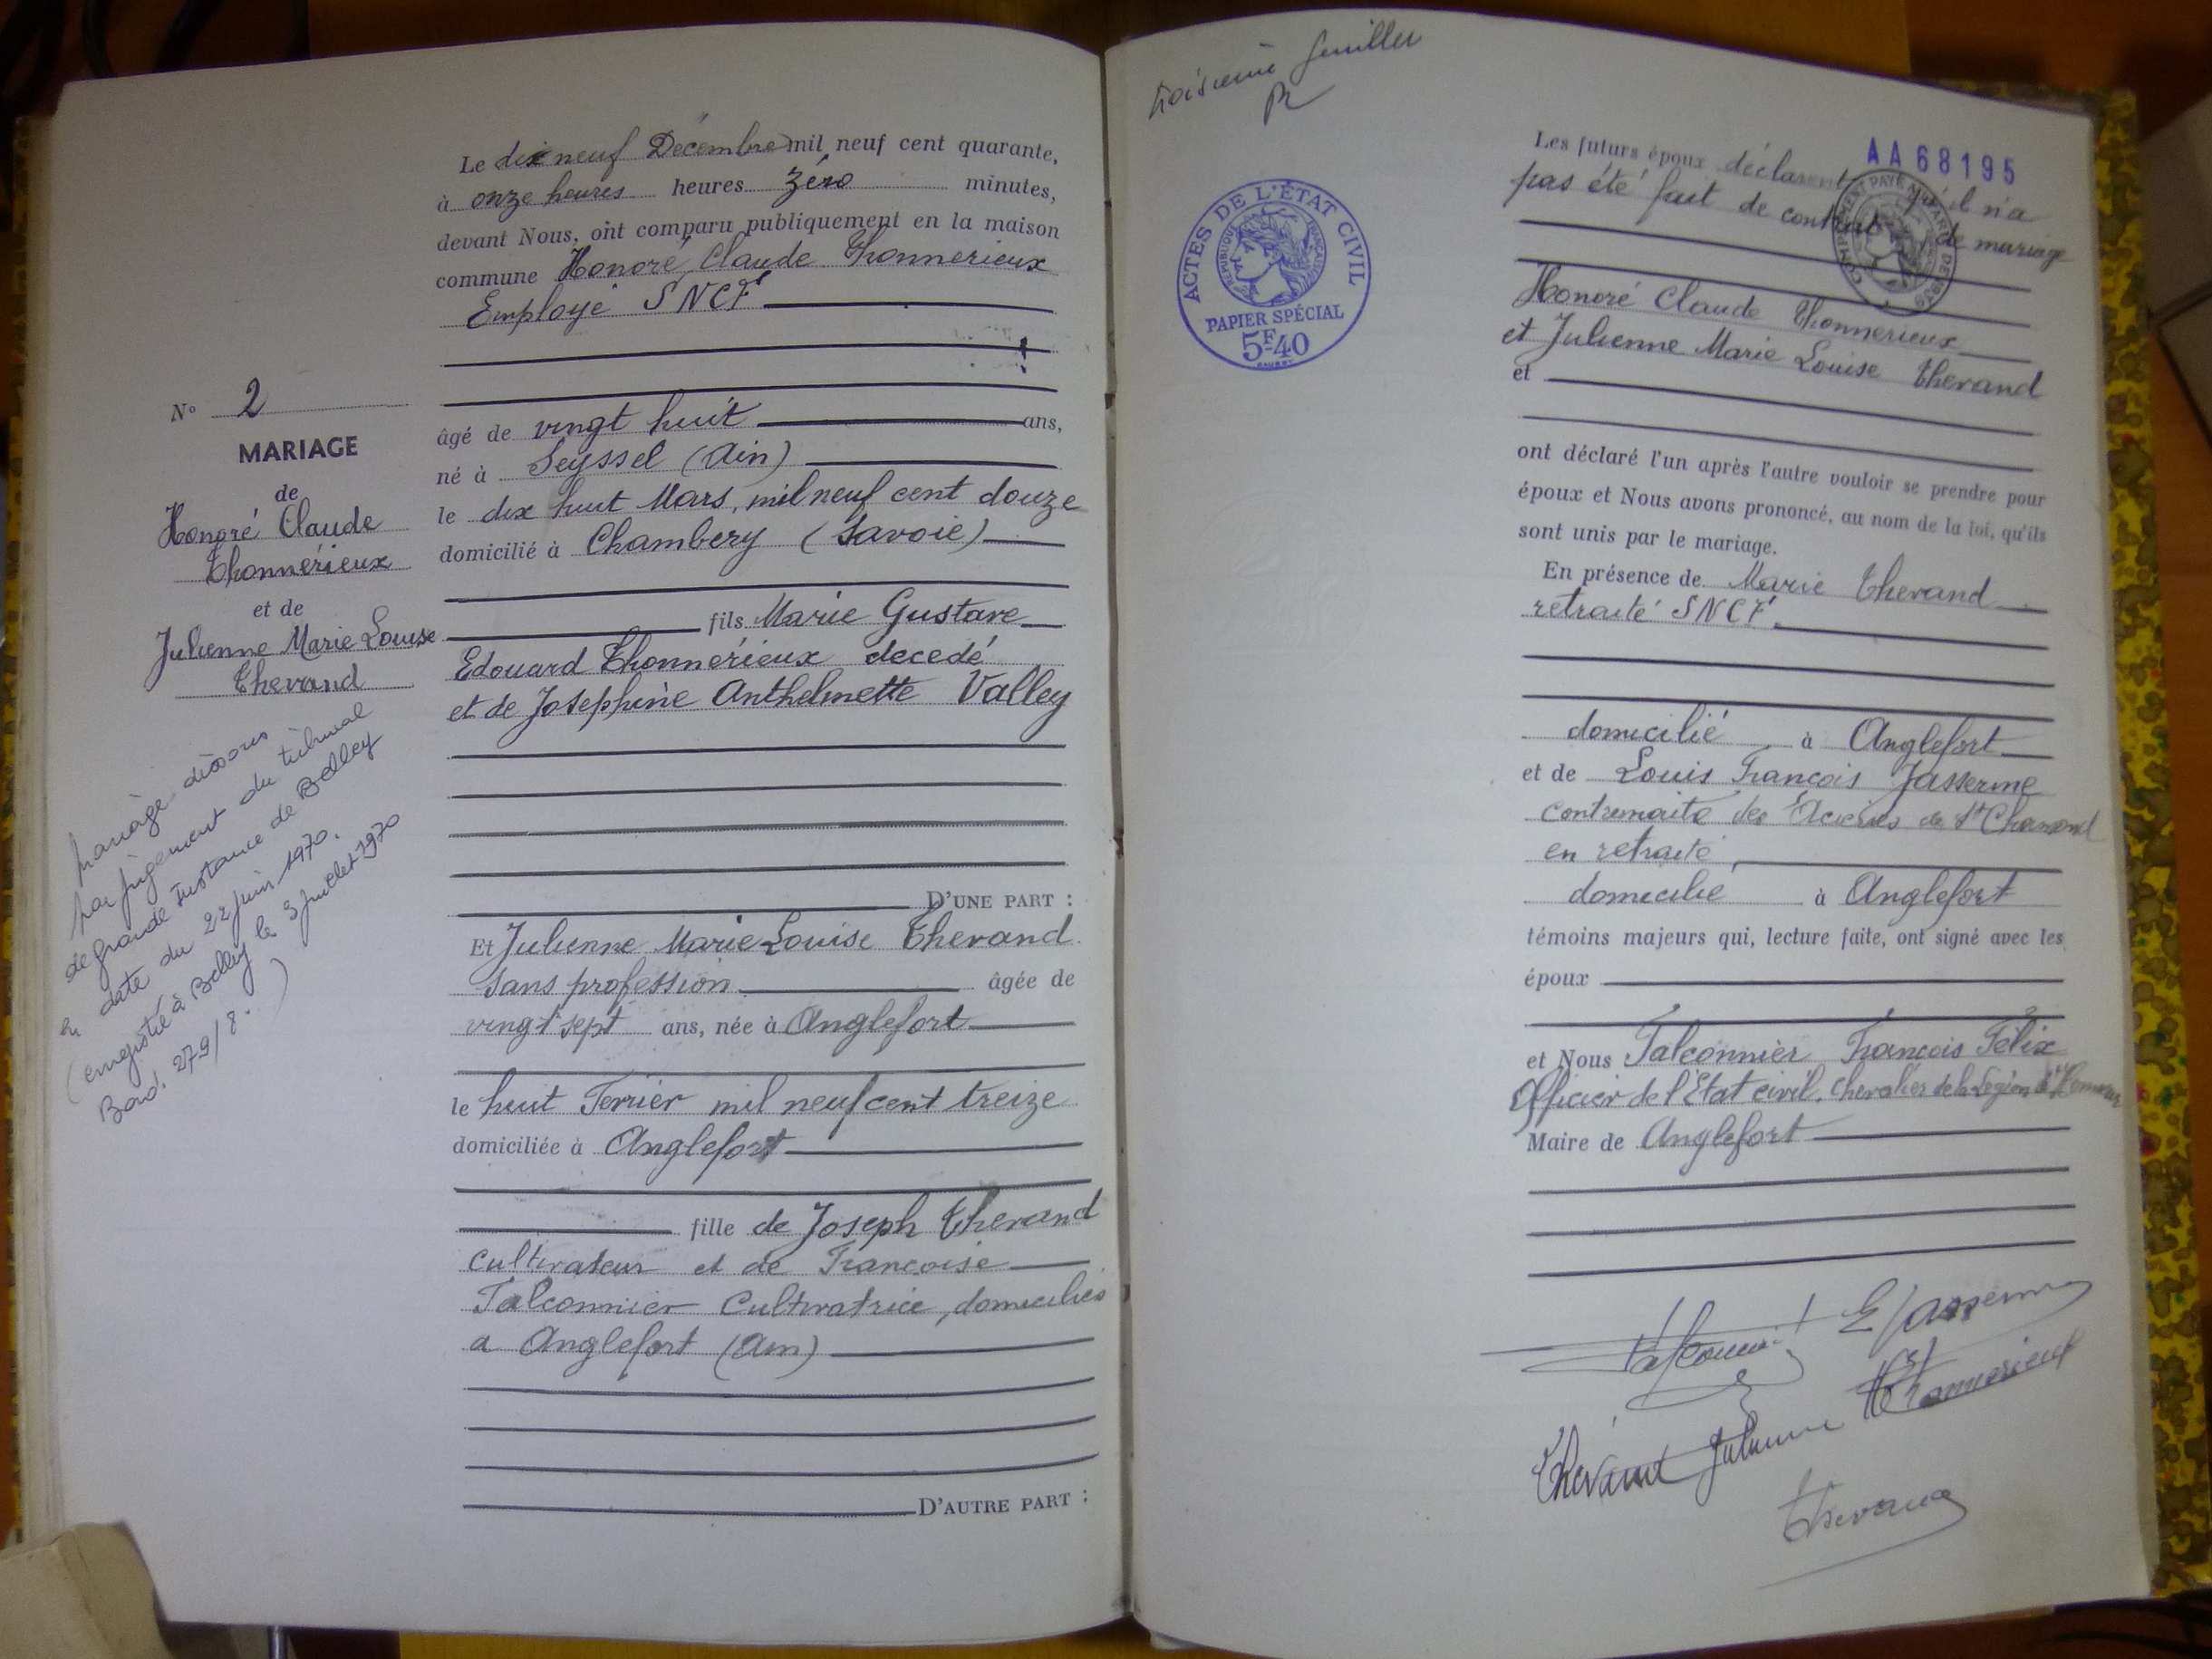 Le dix neuf Décembre mil neuf cent quarante,
à onze heures heures zéro minutes,
devant Nous, ont comparu publiquement en la maison
commune Honoré Claude Thonnerieux
Employé SNCF
âgé de vingt huit ans,
né à Seyssel (Ain)
le dix huit Mars, mil neuf cent douze
domicilié à Chambery (Savoie)
fils Marie Gustave
Edouard Thonnérieux decedé
et de Josephine Anthelmette Valley
D'UNE PART :
Et Julienne Marie Louise Thevand
sans profession âgée de
vingt sept ans, née à Anglefort
le huit Fevrier mil neuf cent treize
domiciliée à Anglefort
fille de Joseph Thevand
cultivateur et de Francoise
Falconnier Cultivatrice, domiciliés
a Anglefort (Ain)
D'AUTRE PART :
N° 2
MARIAGE
de
Honoré Claude
Thonnérieux
et de
Julienne Marie Louise
Thevand
mariage dissous
par jugement du tribunal
de grande Instance de Belley
en date du 22 juin 1970.
(enregistré à Belley le 3 juillet 1970
Bord. 279/8.)
troisième feuillet
ACTES DE L'ÉTAT CIVIL
RÉPUBLIQUE FRANÇAISE
PAPIER SPÉCIAL
5F40
AA68195
Les futurs époux déclarent qu'il n'a
pas été fait de contrat de mariage
Honoré Claude Thonnerieux
et Julienne Marie Louise Thevand
et
ont déclaré l'un après l'autre vouloir se prendre pour
époux et Nous avons prononcé, au nom de la loi, qu'ils
sont unis par le mariage.
En présence de Marie Thevand
retraité SNCF.
domicilié à Anglefort
et de Louis François Jasserme
contremaitre des Acieries de St Chamond
en retraite,
domicilié à Anglefort
témoins majeurs qui, lecture faite, ont signé avec les
époux
et Nous Falconnier François Félix
Officier de l'Etat civil, Chevalier de la Légion d'Honneur
Maire de Anglefort
Falconnier
Jasserme
Thonnerieux
Thévand Julienne
Thevand